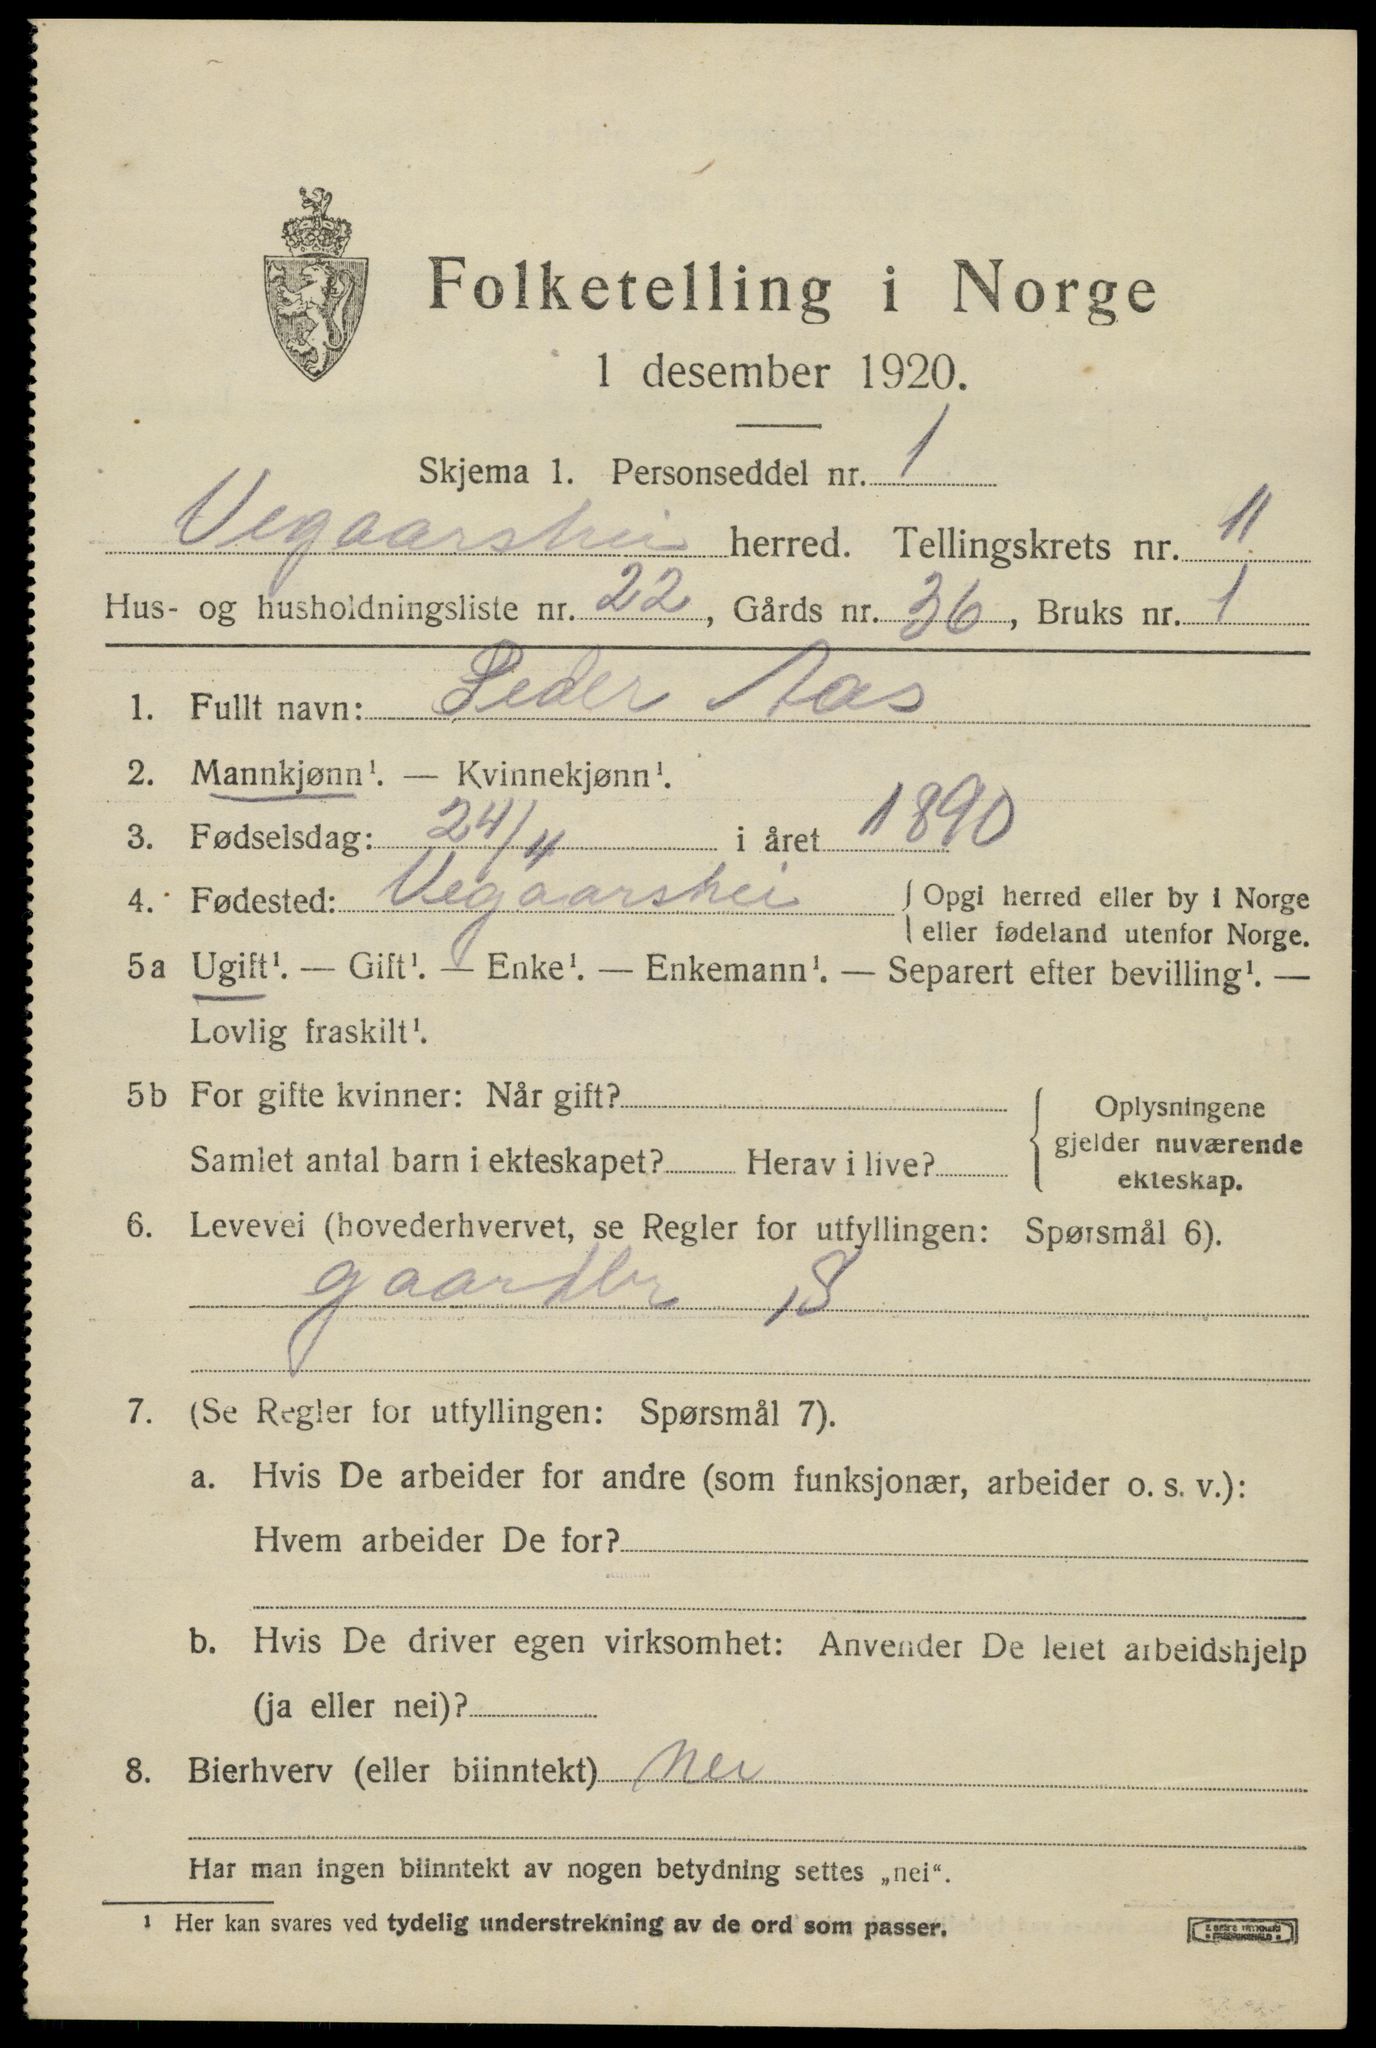 Folketelling i Norge
1 desember 1920.
Skjema 1. Personseddel nr. 1
Vegaarshei herred. Tellingskrets nr. 11
Hus- og husholdningsliste nr. 22, Gårds nr. 36, Bruks nr. 1
1. Fullt navn: Peder Aas
2. Mannkjønn¹. — Kvinnekjønn¹.
3. Fødselsdag: 24/11 i året 1890
4. Fødested: Vegaarshei { Opgi herred eller by i Norge
eller fødeland utenfor Norge.
5a Ugift¹. — Gift¹. — Enke¹. — Enkemann¹. — Separert efter bevilling¹. —
Lovlig fraskilt¹.
5b For gifte kvinner: Når gift? { Oplysningene
gjelder nuværende
Samlet antal barn i ekteskapet? Herav i live? ekteskap.
6. Levevei (hovederhvervet, se Regler for utfyllingen: Spørsmål 6).
gaardbr S
7. (Se Regler for utfyllingen: Spørsmål 7).
a. Hvis De arbeider for andre (som funksjonær, arbeider o. s. v.):
Hvem arbeider De for?
b. Hvis De driver egen virksomhet: Anvender De leiet arbeidshjelp
(ja eller nei)?
8. Bierhverv (eller biinntekt) nei
Har man ingen biinntekt av nogen betydning settes „nei“.
¹ Her kan svares ved tydelig understrekning av de ord som passer.